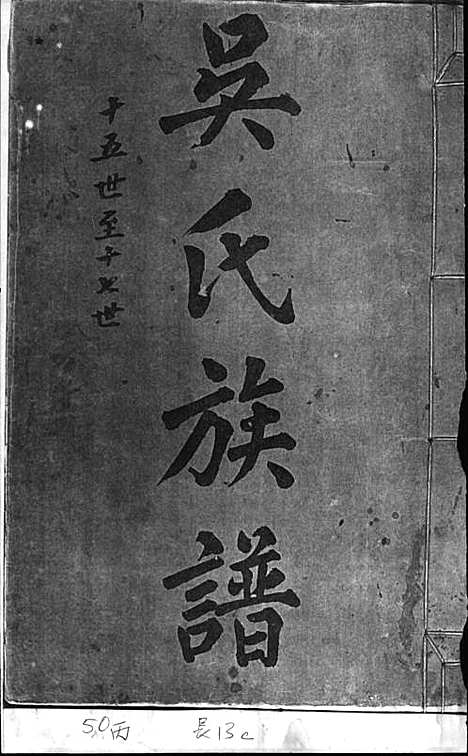 吳氏族譜
十五世至十七世
50丙
長13c